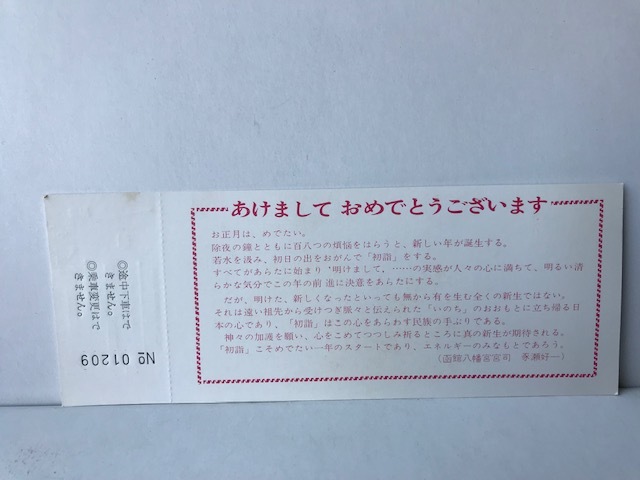 あけまして おめでとうございます
お正月は、めでたい。
除夜の鐘とともに百八つの煩悩をはらうと、新しい年が誕生する。
若水を汲み、初日の出をおがんで「初詣」をする。
すべてがあらたに始まり“明けまして、……の実感が人々の心に満ちて、明るい清
らかな気分でこの年の前進に決意をあらたにする。
だが、明けた、新しくなったといっても無から有を生む全くの新生ではない。
それは遠い祖先から受けつぎ脈々と伝えられた「いのち」のおおもとに立ち帰る日
本の心であり、「初詣」はこの心をあらわす民族の手ぶりである。
神々の加護を願い、心をこめてつつしみ祈るところに真の新生が期待される。
「初詣」こそめでたい一年のスタートであり、エネルギーのみなもとであろう。
(函館八幡宮宮司 瀬好一)
◎途中下車はで
きません。
◎乗車変更はで
きません。
№ 01209